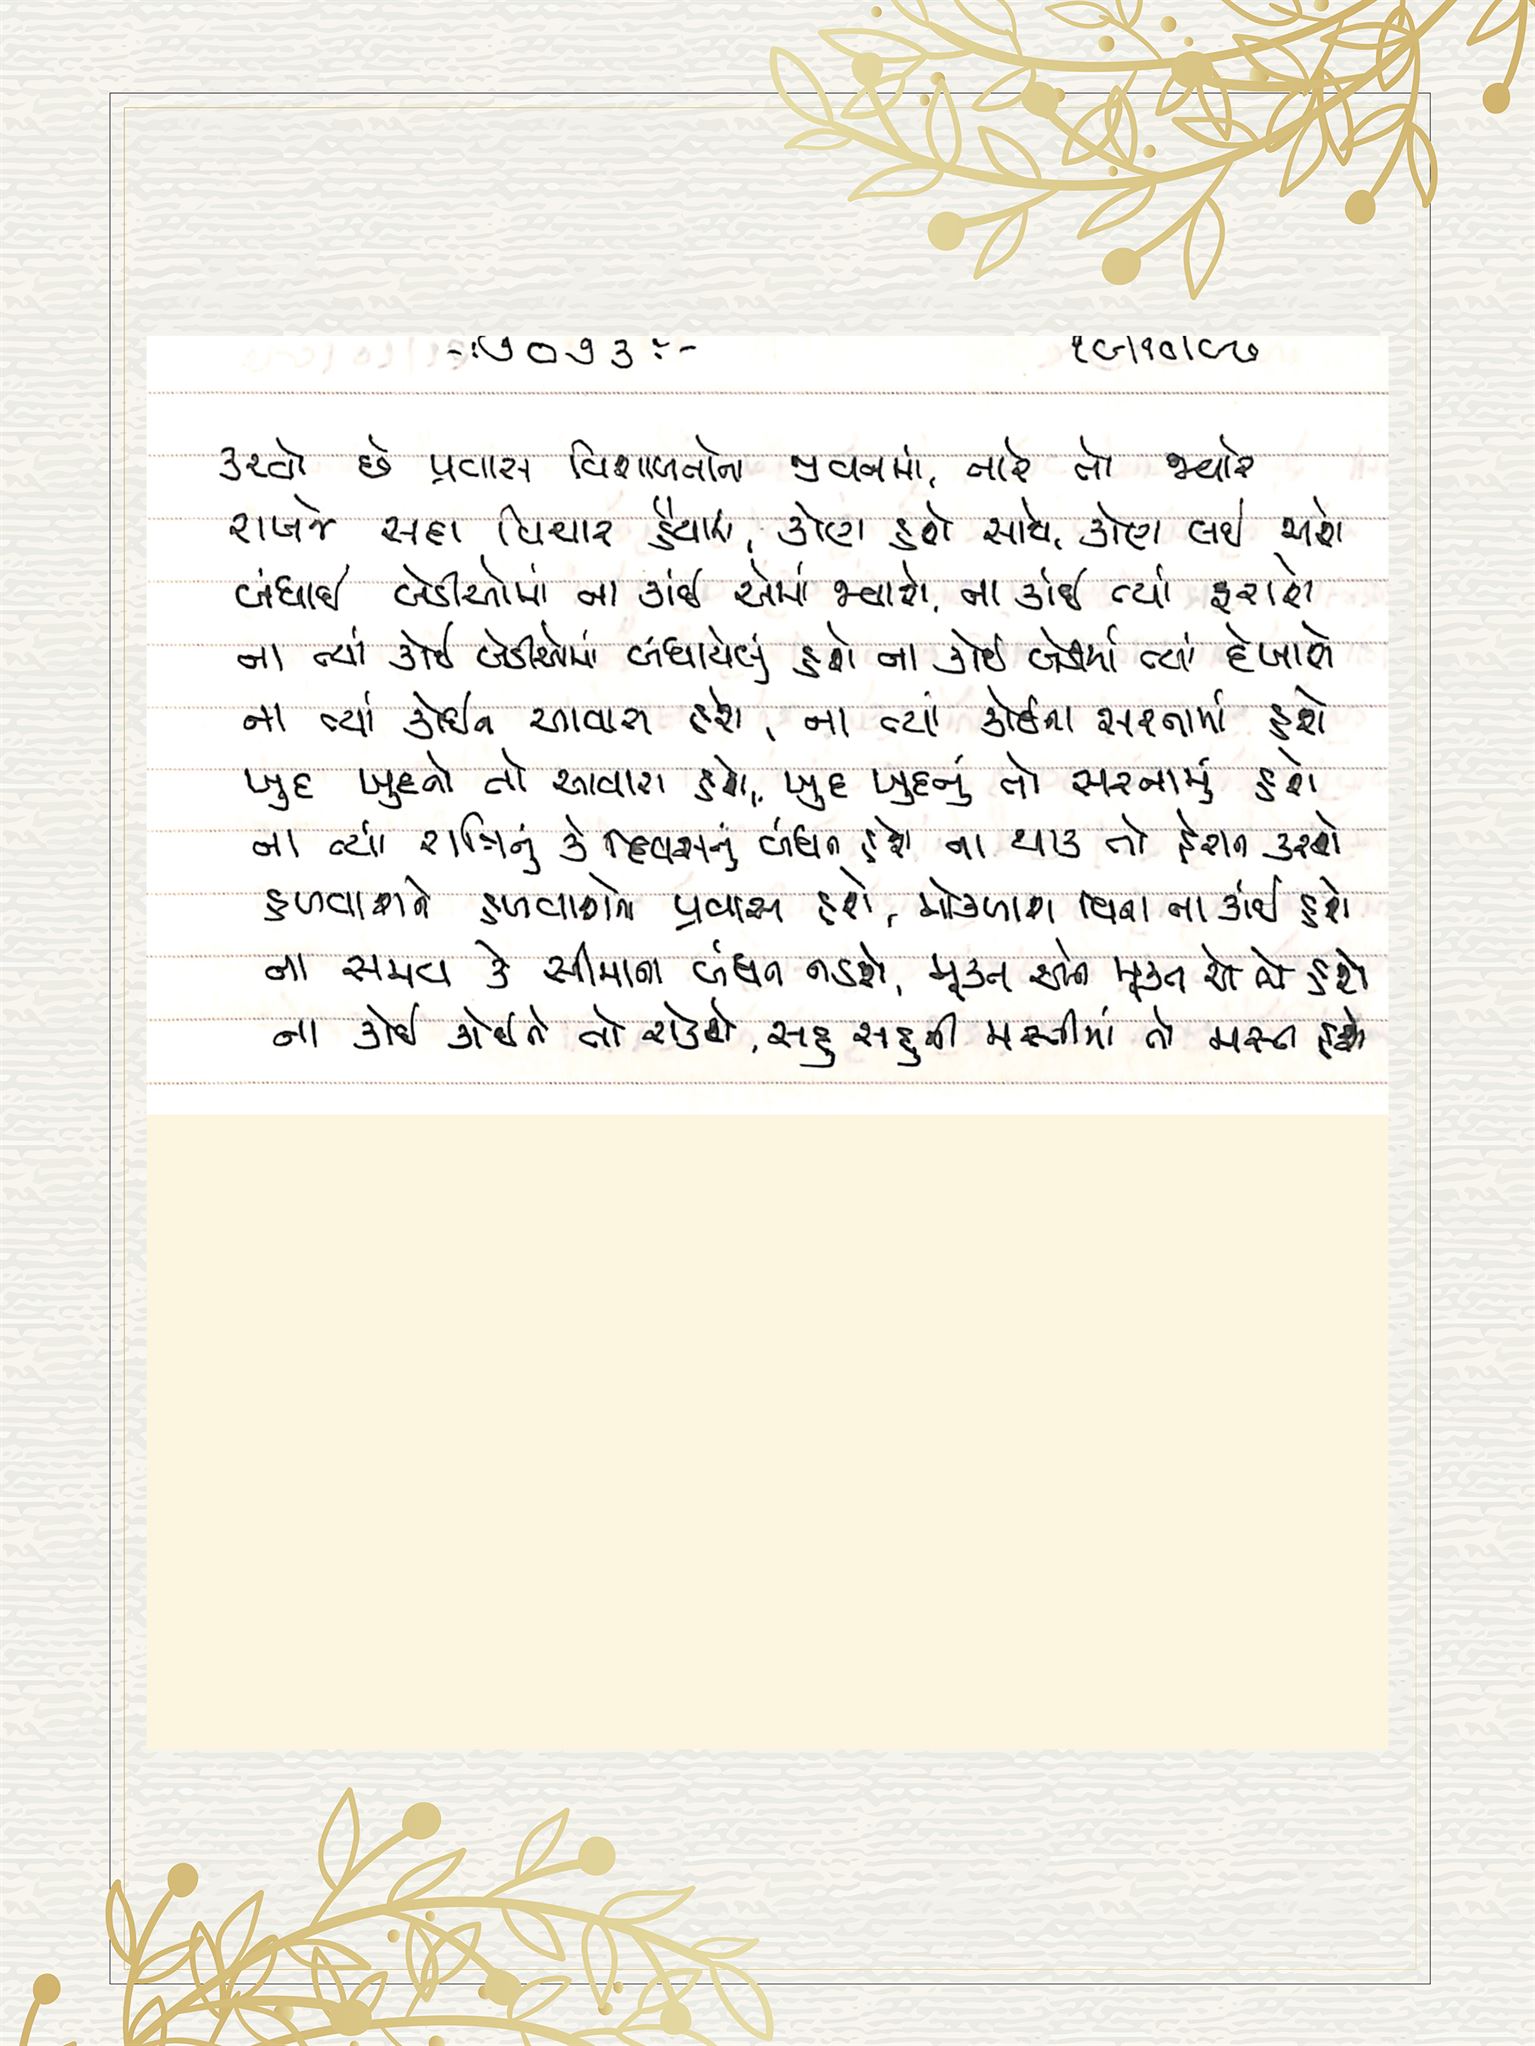 -:૭૦૭૩:- ૧૯/૧૦/૯૭
કરવો છે પ્રવાસ વિશાળતાનો જીવનમાં, નારે તો જ્યારે
રાખજે સદા વિચાર હૈયામાં, કોણ હશે સાથે, કોણ લઈ જાશે
બંધાઈ બેડીઓમાં ના કાંઈ એમાં જ્વાશે, ના કાંઈ ત્યાં ફરાશે
ના ત્યાં કોઈ બેડીઓમાં બંધાયેલું હશે ના કોઈ બેડીમાં ત્યાં દેખાશે
ના ત્યાં કોઈના આવાસ હશે, ના ત્યાં કોઈના સરનામાં હશે
ખુદ ખુદનો તો આવાસ હશે, ખુદ ખુદનું તો સરનામું હશે
ના ત્યાં રાત્રિનું કે દિવસનું બંધન હશે ના થાક તો હેરાન કરશે
હળવાશને હળવાશનો પ્રવાસ હશે, મોકળાશ વિના ના કાંઈ હશે
ના સમય કે સીમાના બંધન નડશે, મૂક્ત અને મૂક્ત એ તો હશે
ના કોઈ કોઈને તો રોકશે, સહુ સહુની મસ્તીમાં તો મસ્ત હશે